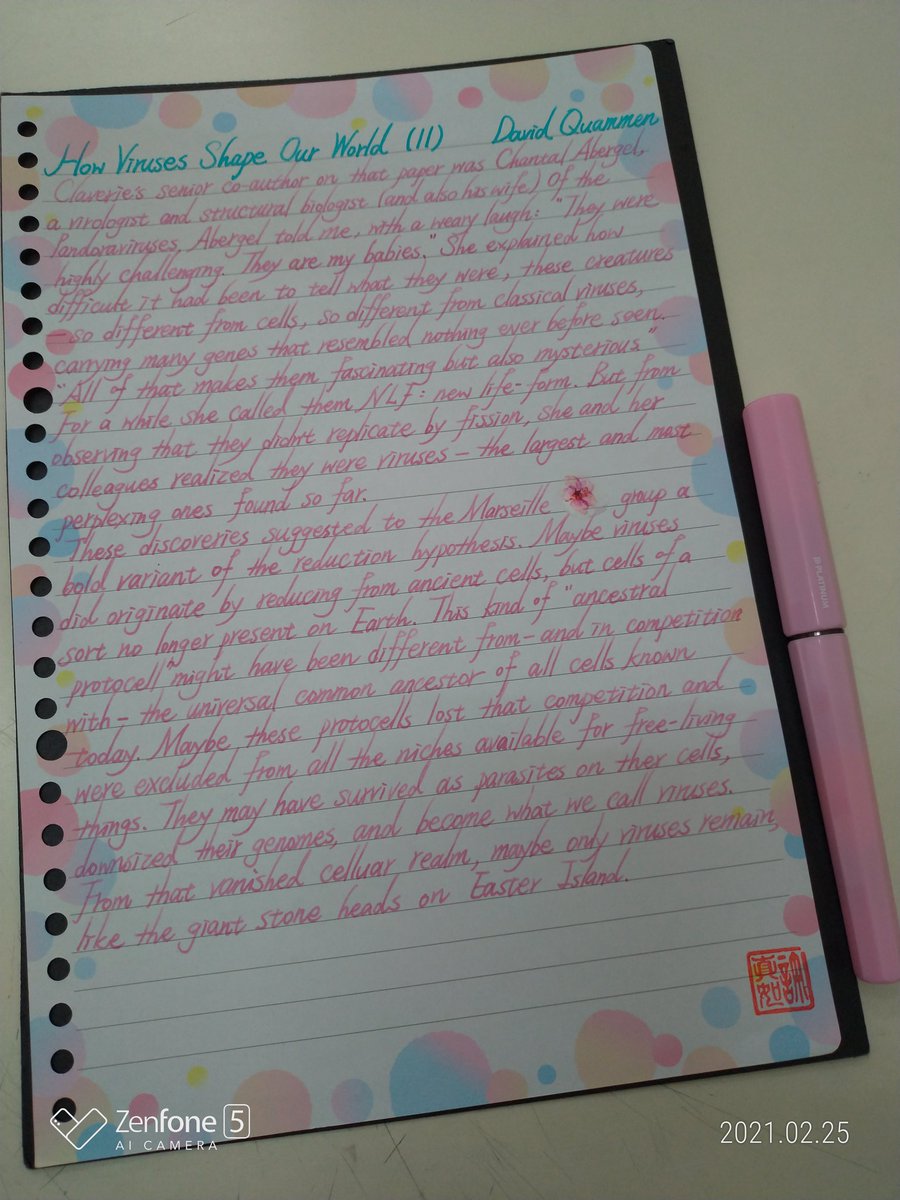 How Viruses Shape Our World (11) David Quammen
Claverie's senior co-author on that paper was Chantal Abergel,
a virologist and structural biologist (and also his wife) Of the
Pandoraviruses, Abergel told me, with a weary laugh: "They were
highly challenging. They are my babies." She explained how
difficult it had been to tell what they were, these creatures
—so different from cells, so different from classical viruses,
carrying many genes that resembled nothing ever before seen.
"All of that makes them fascinating but also mysterious"
For a while she called them NLF: new life-form. But from
observing that they didn't replicate by fission, she and her
colleagues realized they were viruses — the largest and most
perplexing ones found so far.
These discoveries suggested to the Marseille group a
bold variant of the reduction hypothesis. Maybe viruses
did originate by reducing from ancient cells, but cells of a
sort no longer present on Earth. This kind of "ancestral
protocell" might have been different from — and in competition
with — the universal common ancestor of all cells known
today. Maybe these protocells lost that competition and
were excluded from all the niches available for free-living
things. They may have survived as parasites on ther cells,
downsized their genomes, and become what we call viruses.
From that vanished celluar realm, maybe only viruses remain,
like the giant stone heads on Easter Island.
PLATINUM
Zenfone 5
AI CAMERA
2021.02.25